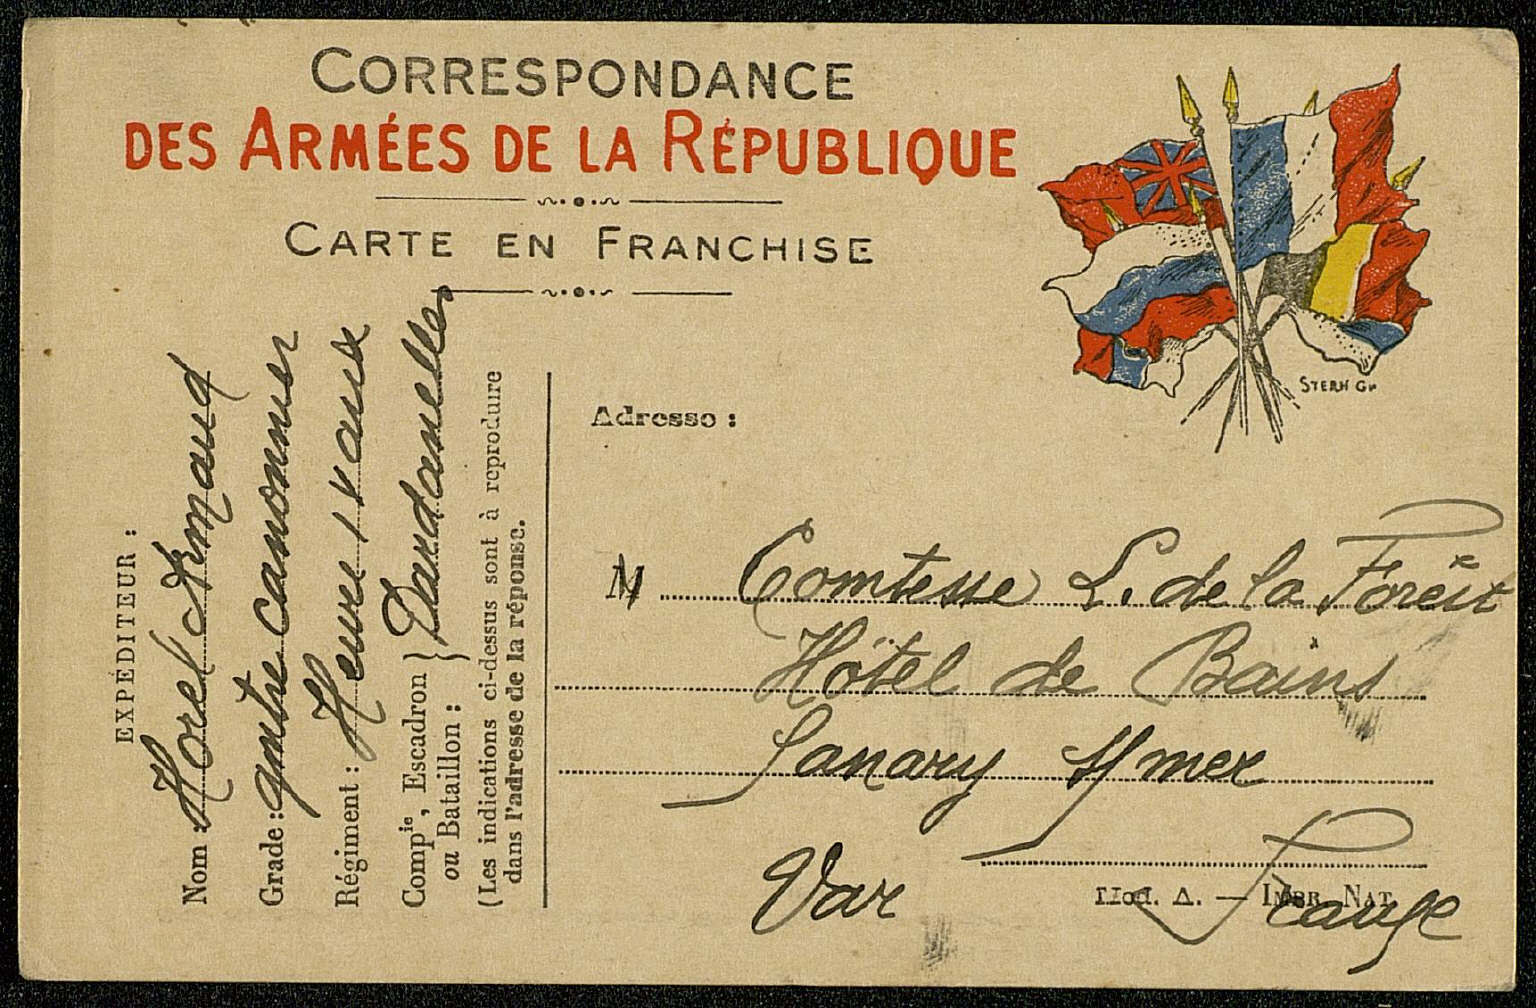 CORRESPONDANCE
DES ARMÉES DE LA RÉPUBLIQUE
CARTE EN FRANCHISE
STERN Gr
EXPÉDITEUR :
Nom : Morel Armand
Grade : canonnier
Régiment :
Compie, Escadron
ou Bataillon : } Dardanelles
(Les indications ci-dessus sont à reproduire
dans l'adresse de la réponse.
Adresse :
M Comtesse L. de la Forêst
Hôtel de Bains
Sanary s/ mer
Var
Mod. A. — IMPR. NAT.
France